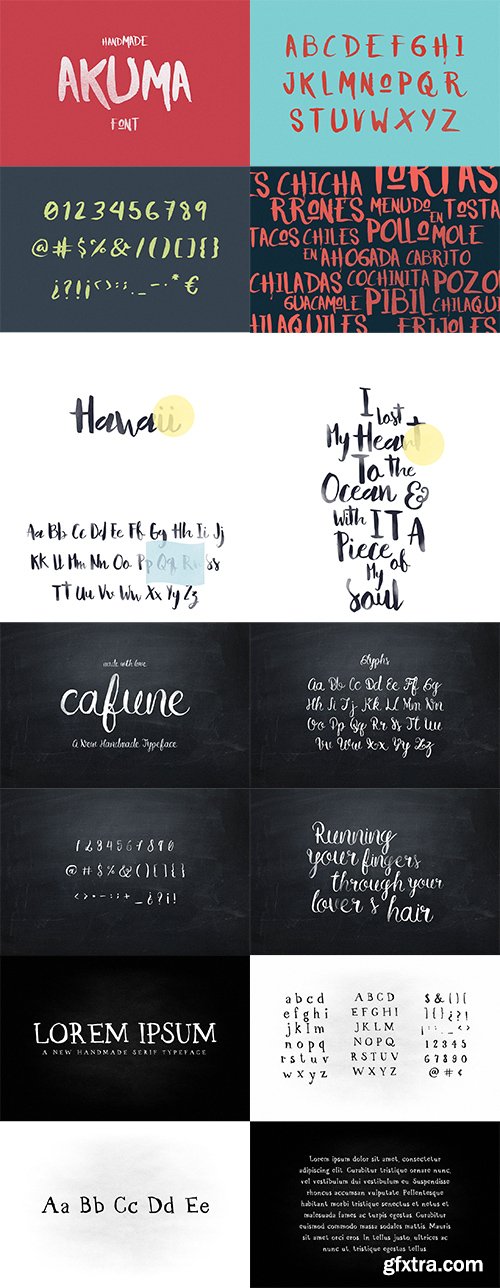 HANDMADE
AKUMA
FONT
ABCDEFGHI
JKLMNOPQR
STUVWXYZ
0123456789
@#$%&/()[]{}
¿?!¡<>:;._-·*€
TORTAS
ES CHICHA
RRONES MENUDO EN TOSTA
TACOS CHILES POLLO MOLE
EN AHOGADA CABRITO
CHILADAS COCHINITA POZO
GUACAMOLE PIBIL CHILAQUI
HILAQUILES FRIJOLES
Hawaii
Aa Bb Cc Dd Ee Ff Gg Hh Ii Jj
Kk Ll Mm Nn Oo Pp Qq Rr Ss
Tt Uu Vv Ww Xx Yy Zz
I Lost
My Heart
To the
Ocean &
With IT A
Piece of
My
Soul
made with love
cafune
A New Handmade Typeface
Glyphs
Aa Bb Cc Dd Ee Ff Gg
Hh Ii Jj Kk Ll Mm Nn
Oo Pp Qq Rr Ss Tt Uu
Vv Ww Xx Yy Zz
1234567890
@#$%&/()[]{}
<>=-:;._¿?¡!
Running
your fingers
through your
lover's hair
LOREM IPSUM
A NEW HANDMADE SERIF TYPEFACE
abcd ABCD $&([
efgh EFGHI
jklm JKLM
nopq NOPQ 12345
rstuv RSTUV 67890
wxyz WXYZ @#€
Aa Bb Cc Dd Ee
Lorem ipsum dolor sit amet, consectetur
adipiscing elit. Curabitur tristique ornare nunc,
vel vestibulum dui vestibulum eu. Suspendisse
rhoncus tristique laoreet. Pellentesque
habitant morbi tristique senectus et netus et
malesuada fames ac turpis egestas. Curabitur
euismod commodo massa sodales mattis. Mauris
sit amet orci eros. In tellus justo, ultricies
ac nunc ut, tristique egestas tellus.
gfxtra.com